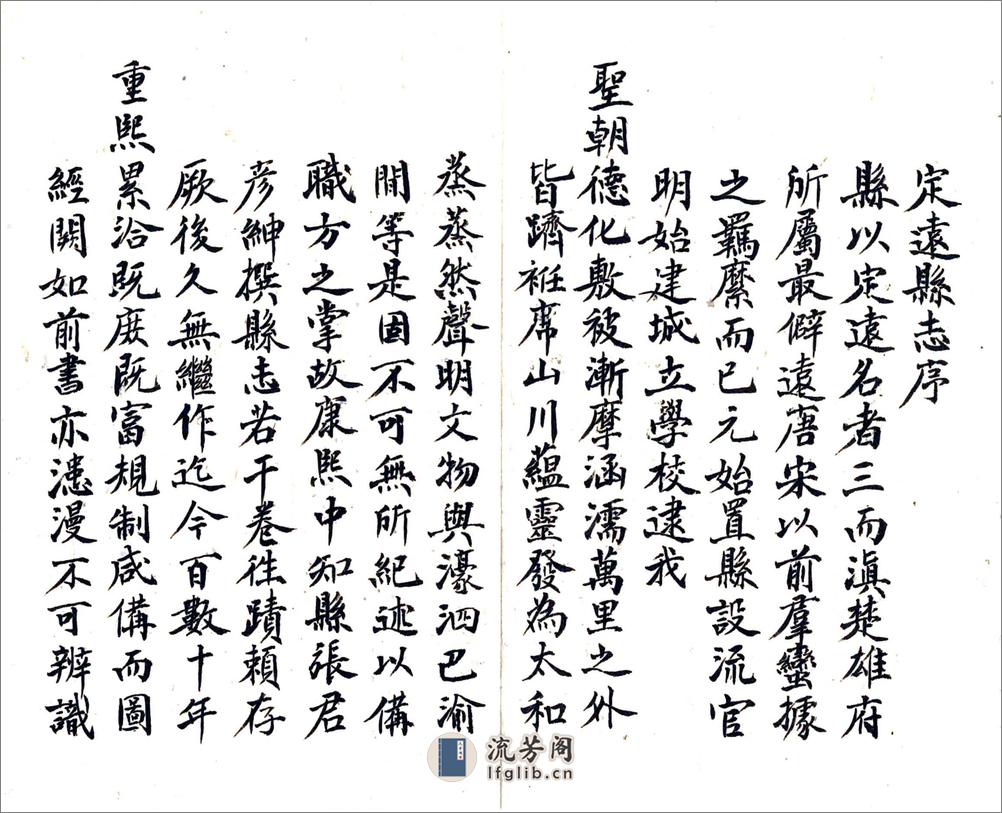 定遠縣志序
縣以定遠名者三而滇楚雄府
所屬最僻遠唐宋以前羣蠻據
之羈縻而已元始置縣設流官
明始建城立學校逮我
聖朝德化敷被漸摩涵濡萬里之外
皆躋袵席山川蘊靈發為太和
蒸蒸然聲明文物與濠泗巴渝
間等是固不可無所紀述以備
職方之掌故康熙中知縣張君
彦紳撰縣志若干卷徃蹟頼存
厥後久無繼作迄今百數十年
重熙累洽既庶既富規制咸備而圖
經闕如前書亦漶漫不可辨識
流芳阁
lfglib.cn